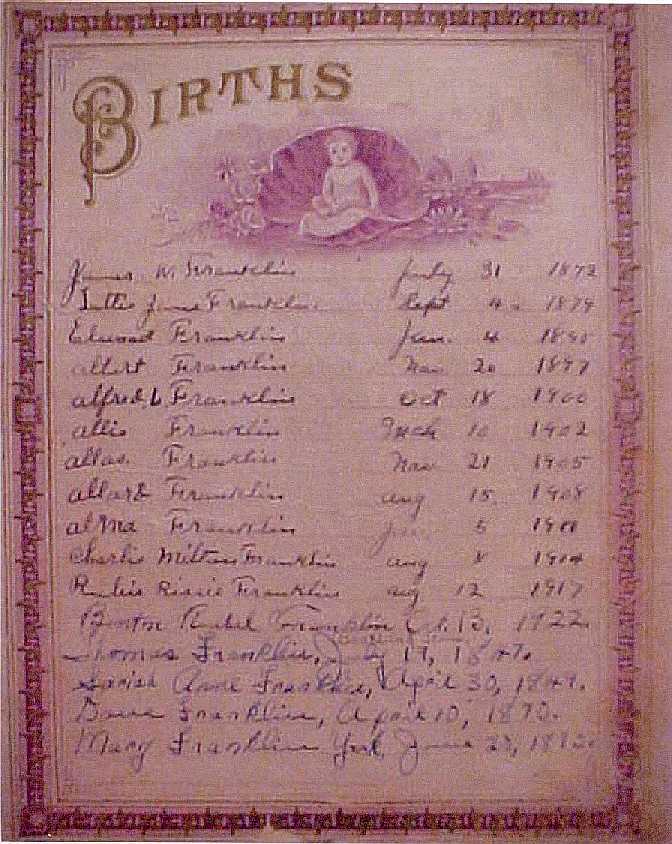 BIRTHS
James W. Franklin July 31 1872
Jane Franklin Sept 4 1879
Elwood Franklin Jan. 4 1895
Albert Franklin Nov 20 1897
Alfred L. Franklin Oct 18 1900
Allie Franklin Mch 10 1902
Allas. Franklin Nov 21 1905
Allard Franklin Aug 15 1908
Alma Franklin 5 1911
Charlie Milton Franklin Aug 8 1914
Franklin Aug 12 1917
Benton Franklin Oct. 13, 1922.
Thomas Franklin, July 19, 1847.
Anne Franklin, April 30, 1849.
Franklin, April 10, 1873.
Mary Franklin York, June